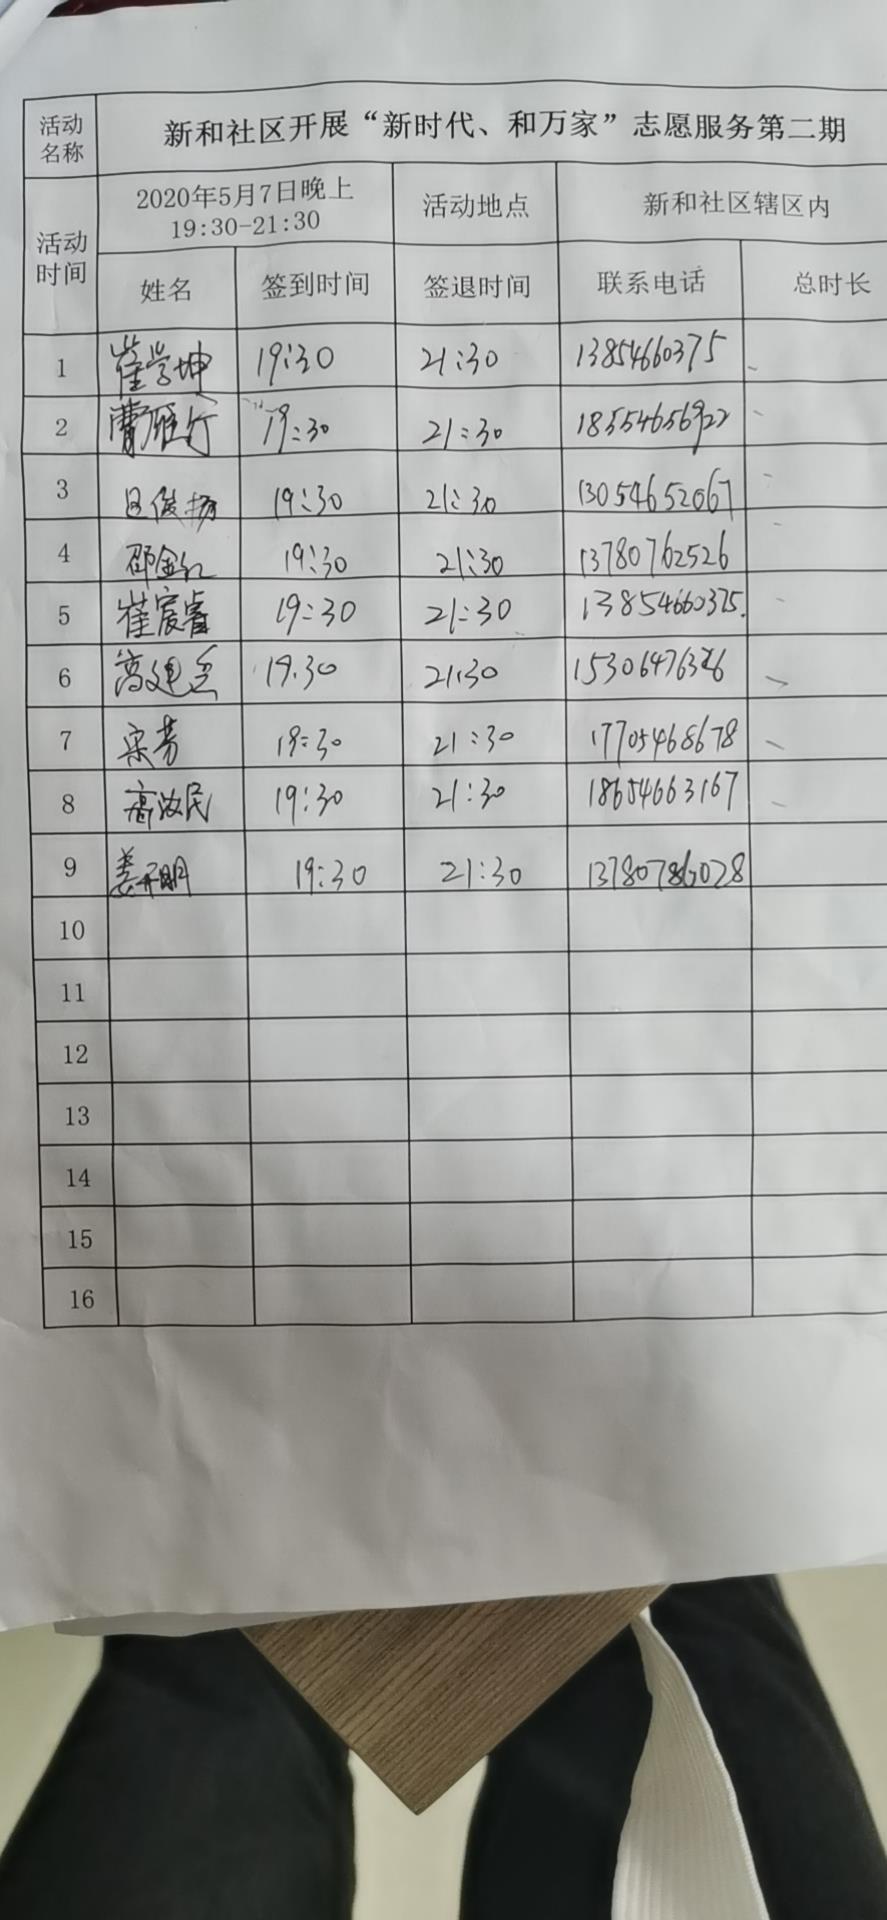 活动名称 新和社区开展“新时代、和万家”志愿服务第二期
活动时间 2020年5月7日晚上 19:30-21:30 活动地点 新和社区辖区内
姓名 签到时间 签退时间 联系电话 总时长
1 崔学坤 19:30 21:30 13854660375
2 曹雁行 19:30 21:30 18554656922
3 吕俊扬 19:30 21:30 13054652067
4 邵金红 19:30 21:30 13780762526
5 崔宸睿 19:30 21:30 13854660375.
6 19.30 21:30
7 宋芳 19:30 21:30 17705468678
8 高汝民 19:30 21:30 18654663167
9 姜开明 19:30 21:30
10
11
12
13
14
15
16